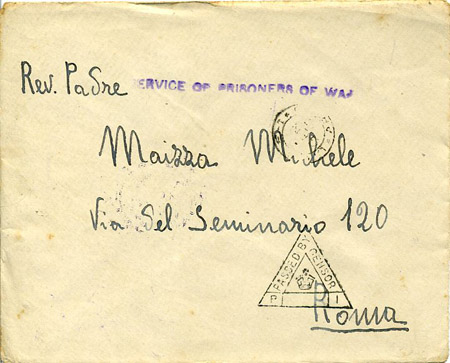 Rev. Padre
SERVICE OF PRISONERS OF WAR
Maizza Michele
Via del Seminario 120
PASSED BY CENSOR
P I
Roma